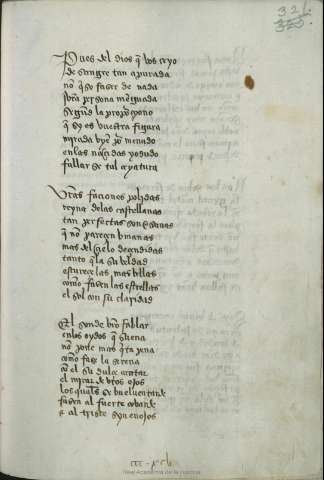 326.
325.
Pues del dios q̃ vos cryo
de sangre tan apurada
non q̃so faser de nada
persona menguada
Segũd la proporçiono
q̃ sy es vuestra figura
mirada byen por menudo
en las naçidas yo dudo
fallar se tal cryatura
Vr̃as façiones polydas
reyna delas castellanas
tan perfectas son
q̃ no pareçen vmanas
mas del çielo deçendidas
tanto q̃ la beldad
escureçe las mas bellas
como fasen las estrellas
el sol con su claridad
El son de fablar
en los oydos q̃ suena
non pone mas q̃ta pena
como fase la serena
con el su dulçe cantar
el mirar de vr̃os ojos
los quales se buelven
fasen al fuerte cobarde
e al triste syn enojos
Real Academia de la Historia